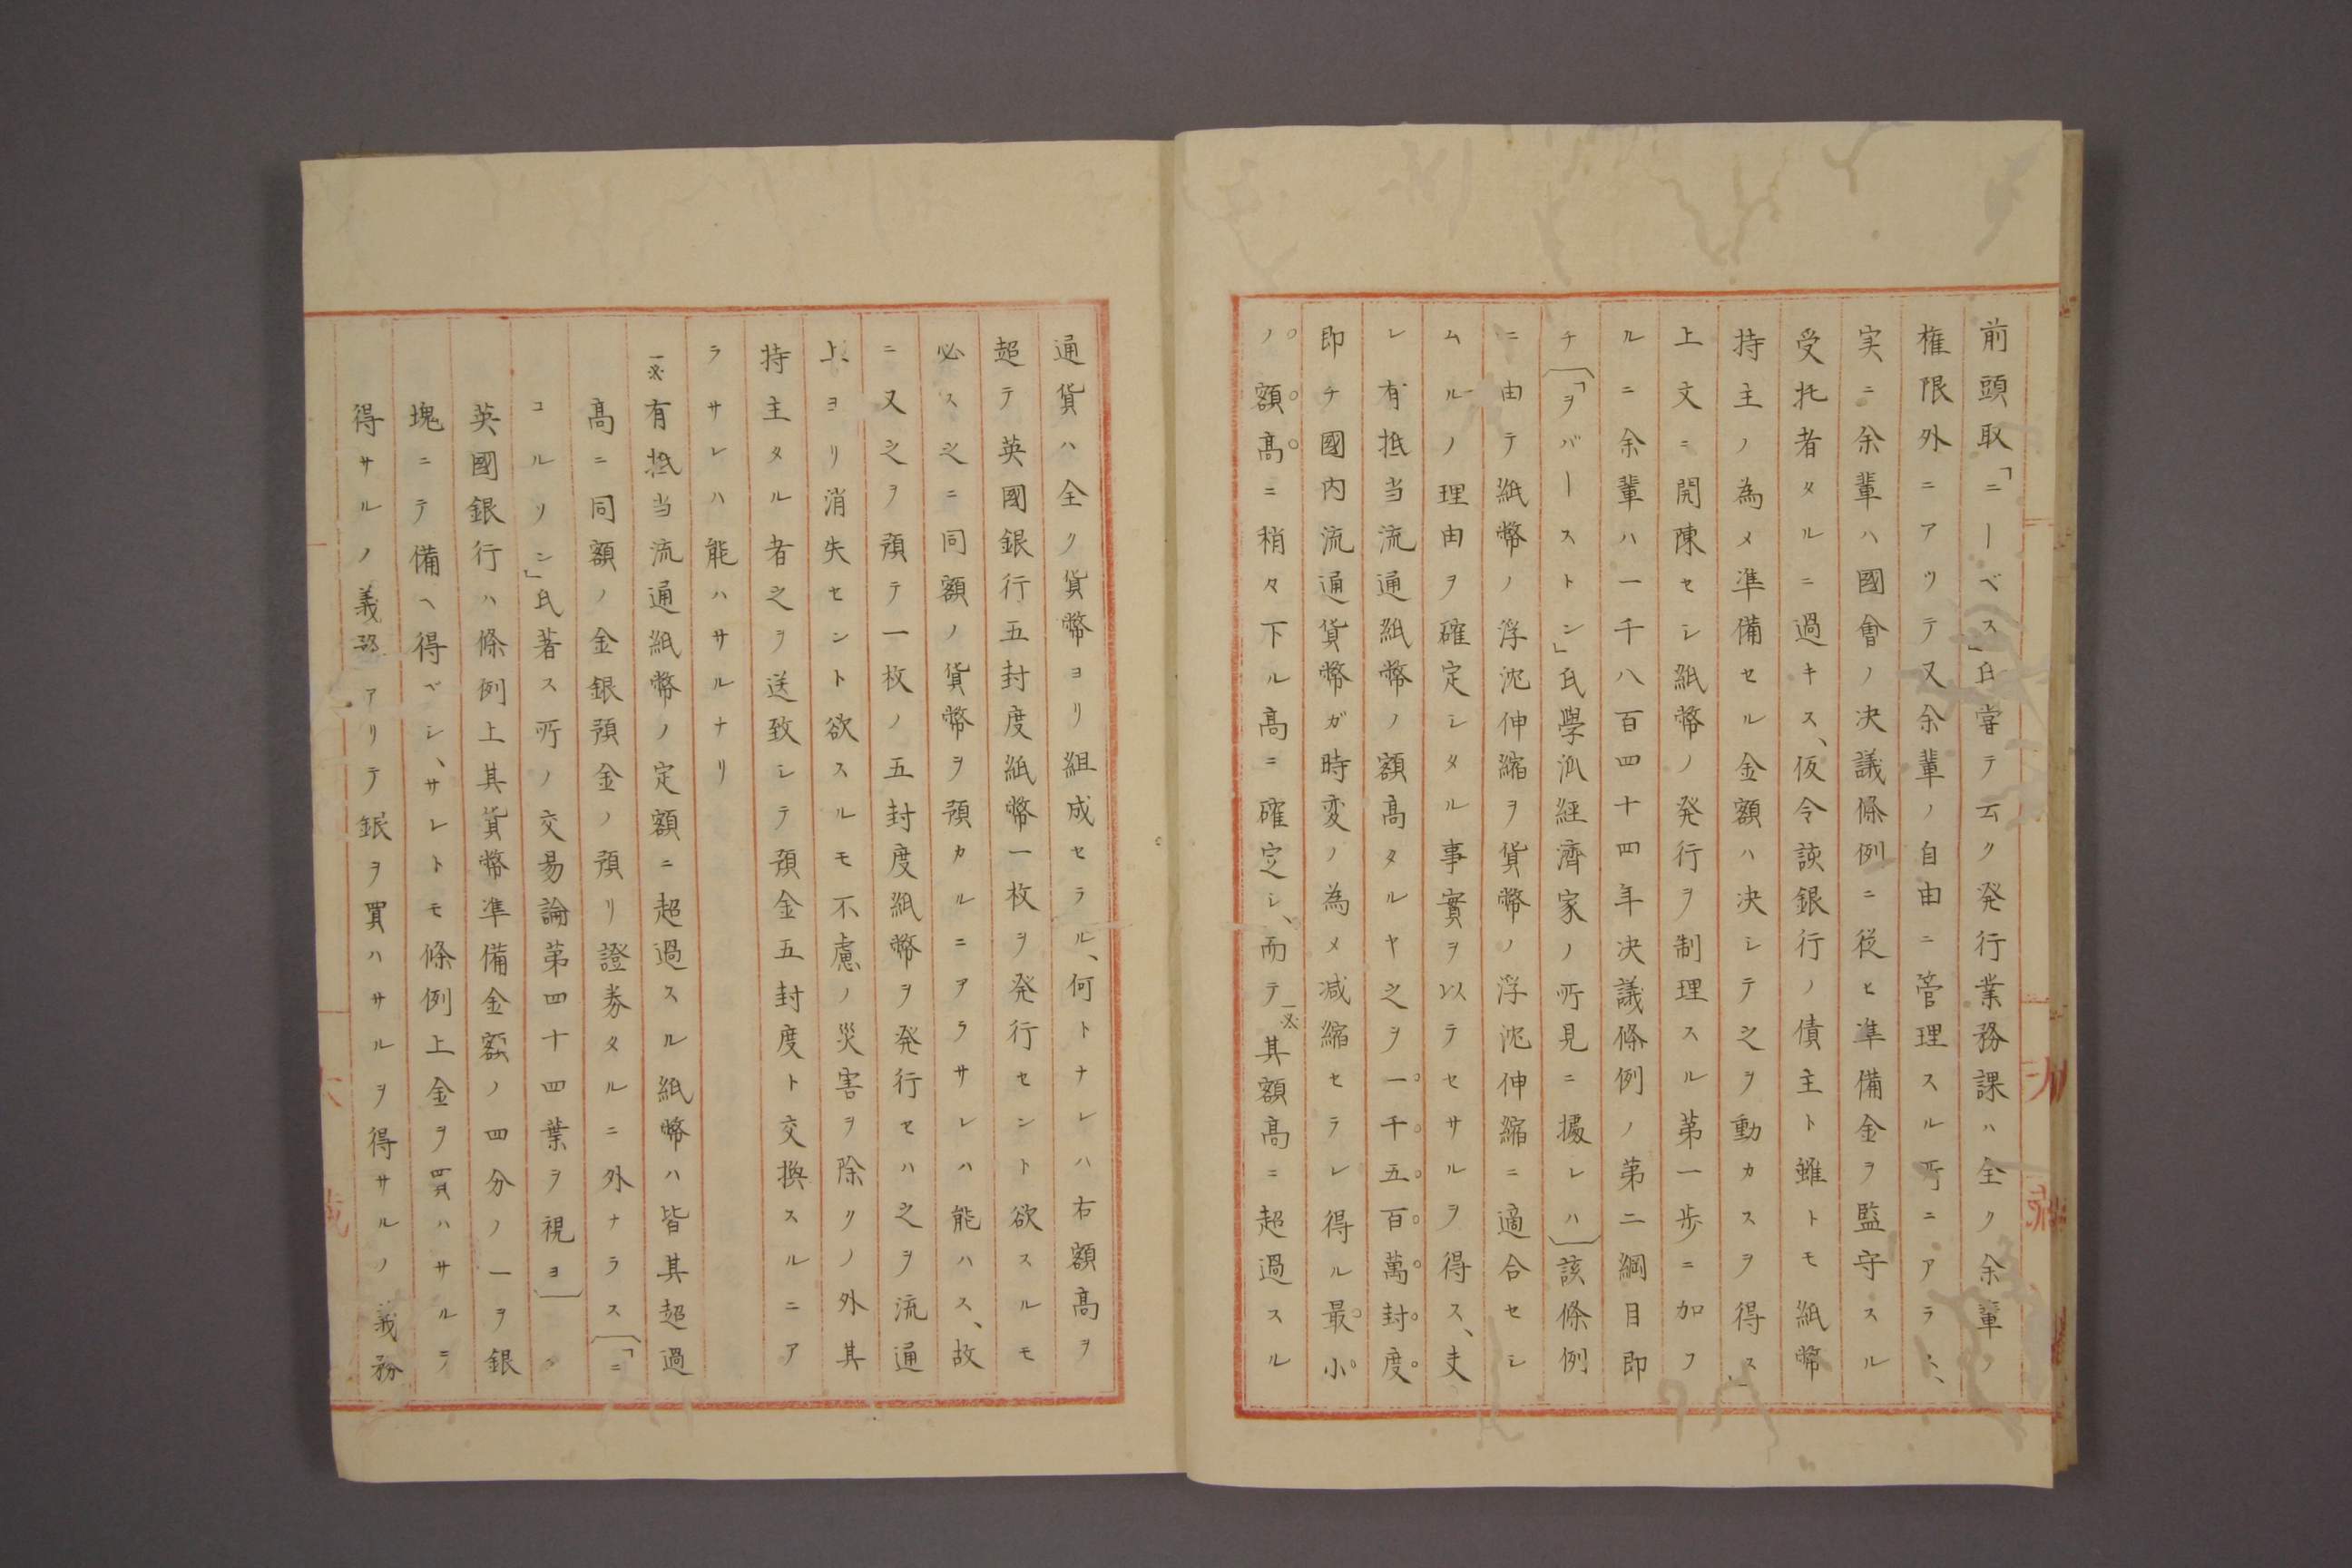 前頭取「ニーベス」氏甞テ云ク発行業務課ハ全ク余輩ノ
権限外ニアツテ又余輩ノ自由ニ管理スル所ニアラス、
実ニ余輩ハ國會ノ决議條例ニ従ヒ凖備金ヲ監守スル
受托者タルニ過キス、仮令該銀行ノ債主ト雖トモ紙幣
持主ノ為メ凖備セル金額ハ决シテ之ヲ動カスヲ得ス、
上文ニ開陳セシ紙幣ノ発行ヲ制理スル第一歩ニ加フ
ルニ余輩ハ一千八百四十四年决議條例ノ第二綱目即
チ〔「ヲバーストン」氏學派経濟家ノ所見ニ據レハ〕該條例
ニ由テ紙幣ノ浮沈伸縮ヲ貨幣ノ浮沈伸縮ニ適合セシ
ムルノ理由ヲ確定シタル事實ヲ以テセサルヲ得ス、夫
レ有抵当流通紙幣ノ額高タルヤ之ヲ一千五百萬封度
即チ國内流通貨幣ガ時変ノ為メ减縮セラレ得ル最小
ノ額高ニ稍々下ル高ニ確定シ、而テ一※其額高ニ超過スル
通貨ハ全ク貨幣ヨリ組成セラル、何トナレハ右額高ヲ
超テ英國銀行五封度紙幣一枚ヲ発行セント欲スルモ
必ス之ニ同額ノ貨幣ヲ預カルニアラサレハ能ハス、故
ニ又之ヲ預テ一枚ノ五封度紙幣ヲ発行セハ之ヲ流通
上ヨリ消失セント欲スルモ不慮ノ災害ヲ除クノ外其
持主タル者之ヲ送致シテ預金五封度ト交換スルニア
ラサレハ能ハサルナリ
一※有抵当流通紙幣ノ定額ニ超過スル紙幣ハ皆其超過
高ニ同額ノ金銀預金ノ預リ證券タルニ外ナラス〔「ニ
コルソン」氏著ス所ノ交易論第四十四葉ヲ視ヨ〕
英國銀行ハ條例上其貨幣凖備金額ノ四分ノ一ヲ銀
塊ニテ備ヘ得ベシ、サレトモ條例上金ヲ買ハサルヲ
得サルノ義務アリテ銀ヲ買ハサルヲ得サルノ義務